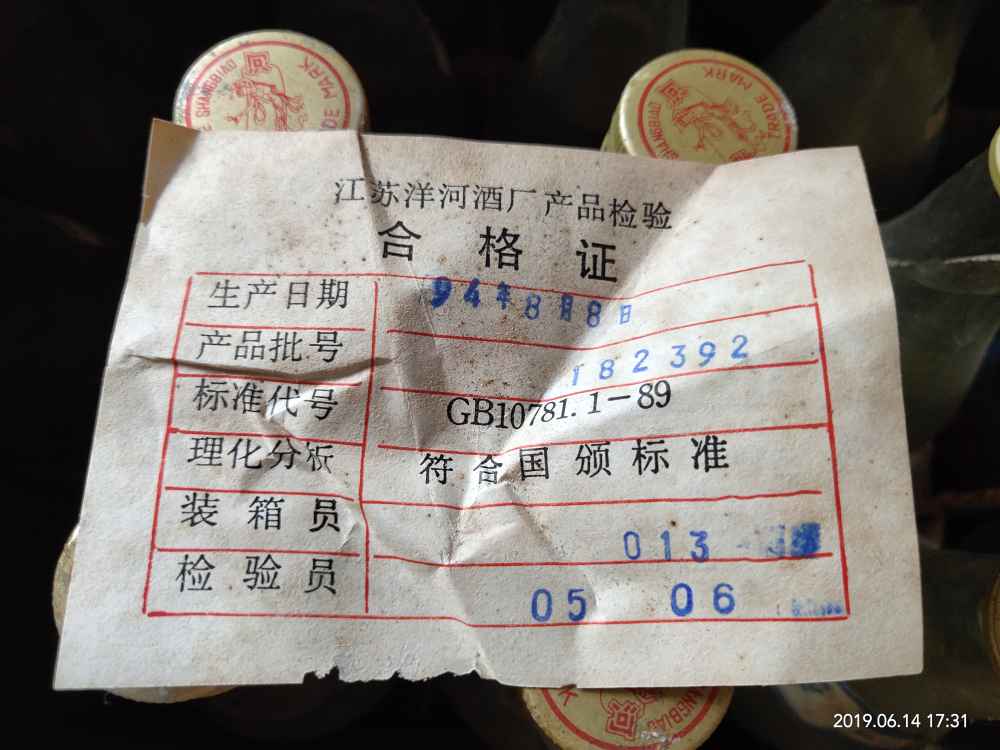 SHANGBIAO TRADE MARK
SHANGBIAO TRADE MARK
江苏洋河酒厂产品检验
合格证
生产日期 94年8月8日
产品批号 182392
标准代号 GB10781.1-89
理化分析 符合国颁标准
装箱员 013
检验员 05 06
SHANGBIAO
2019.06.14 17:31